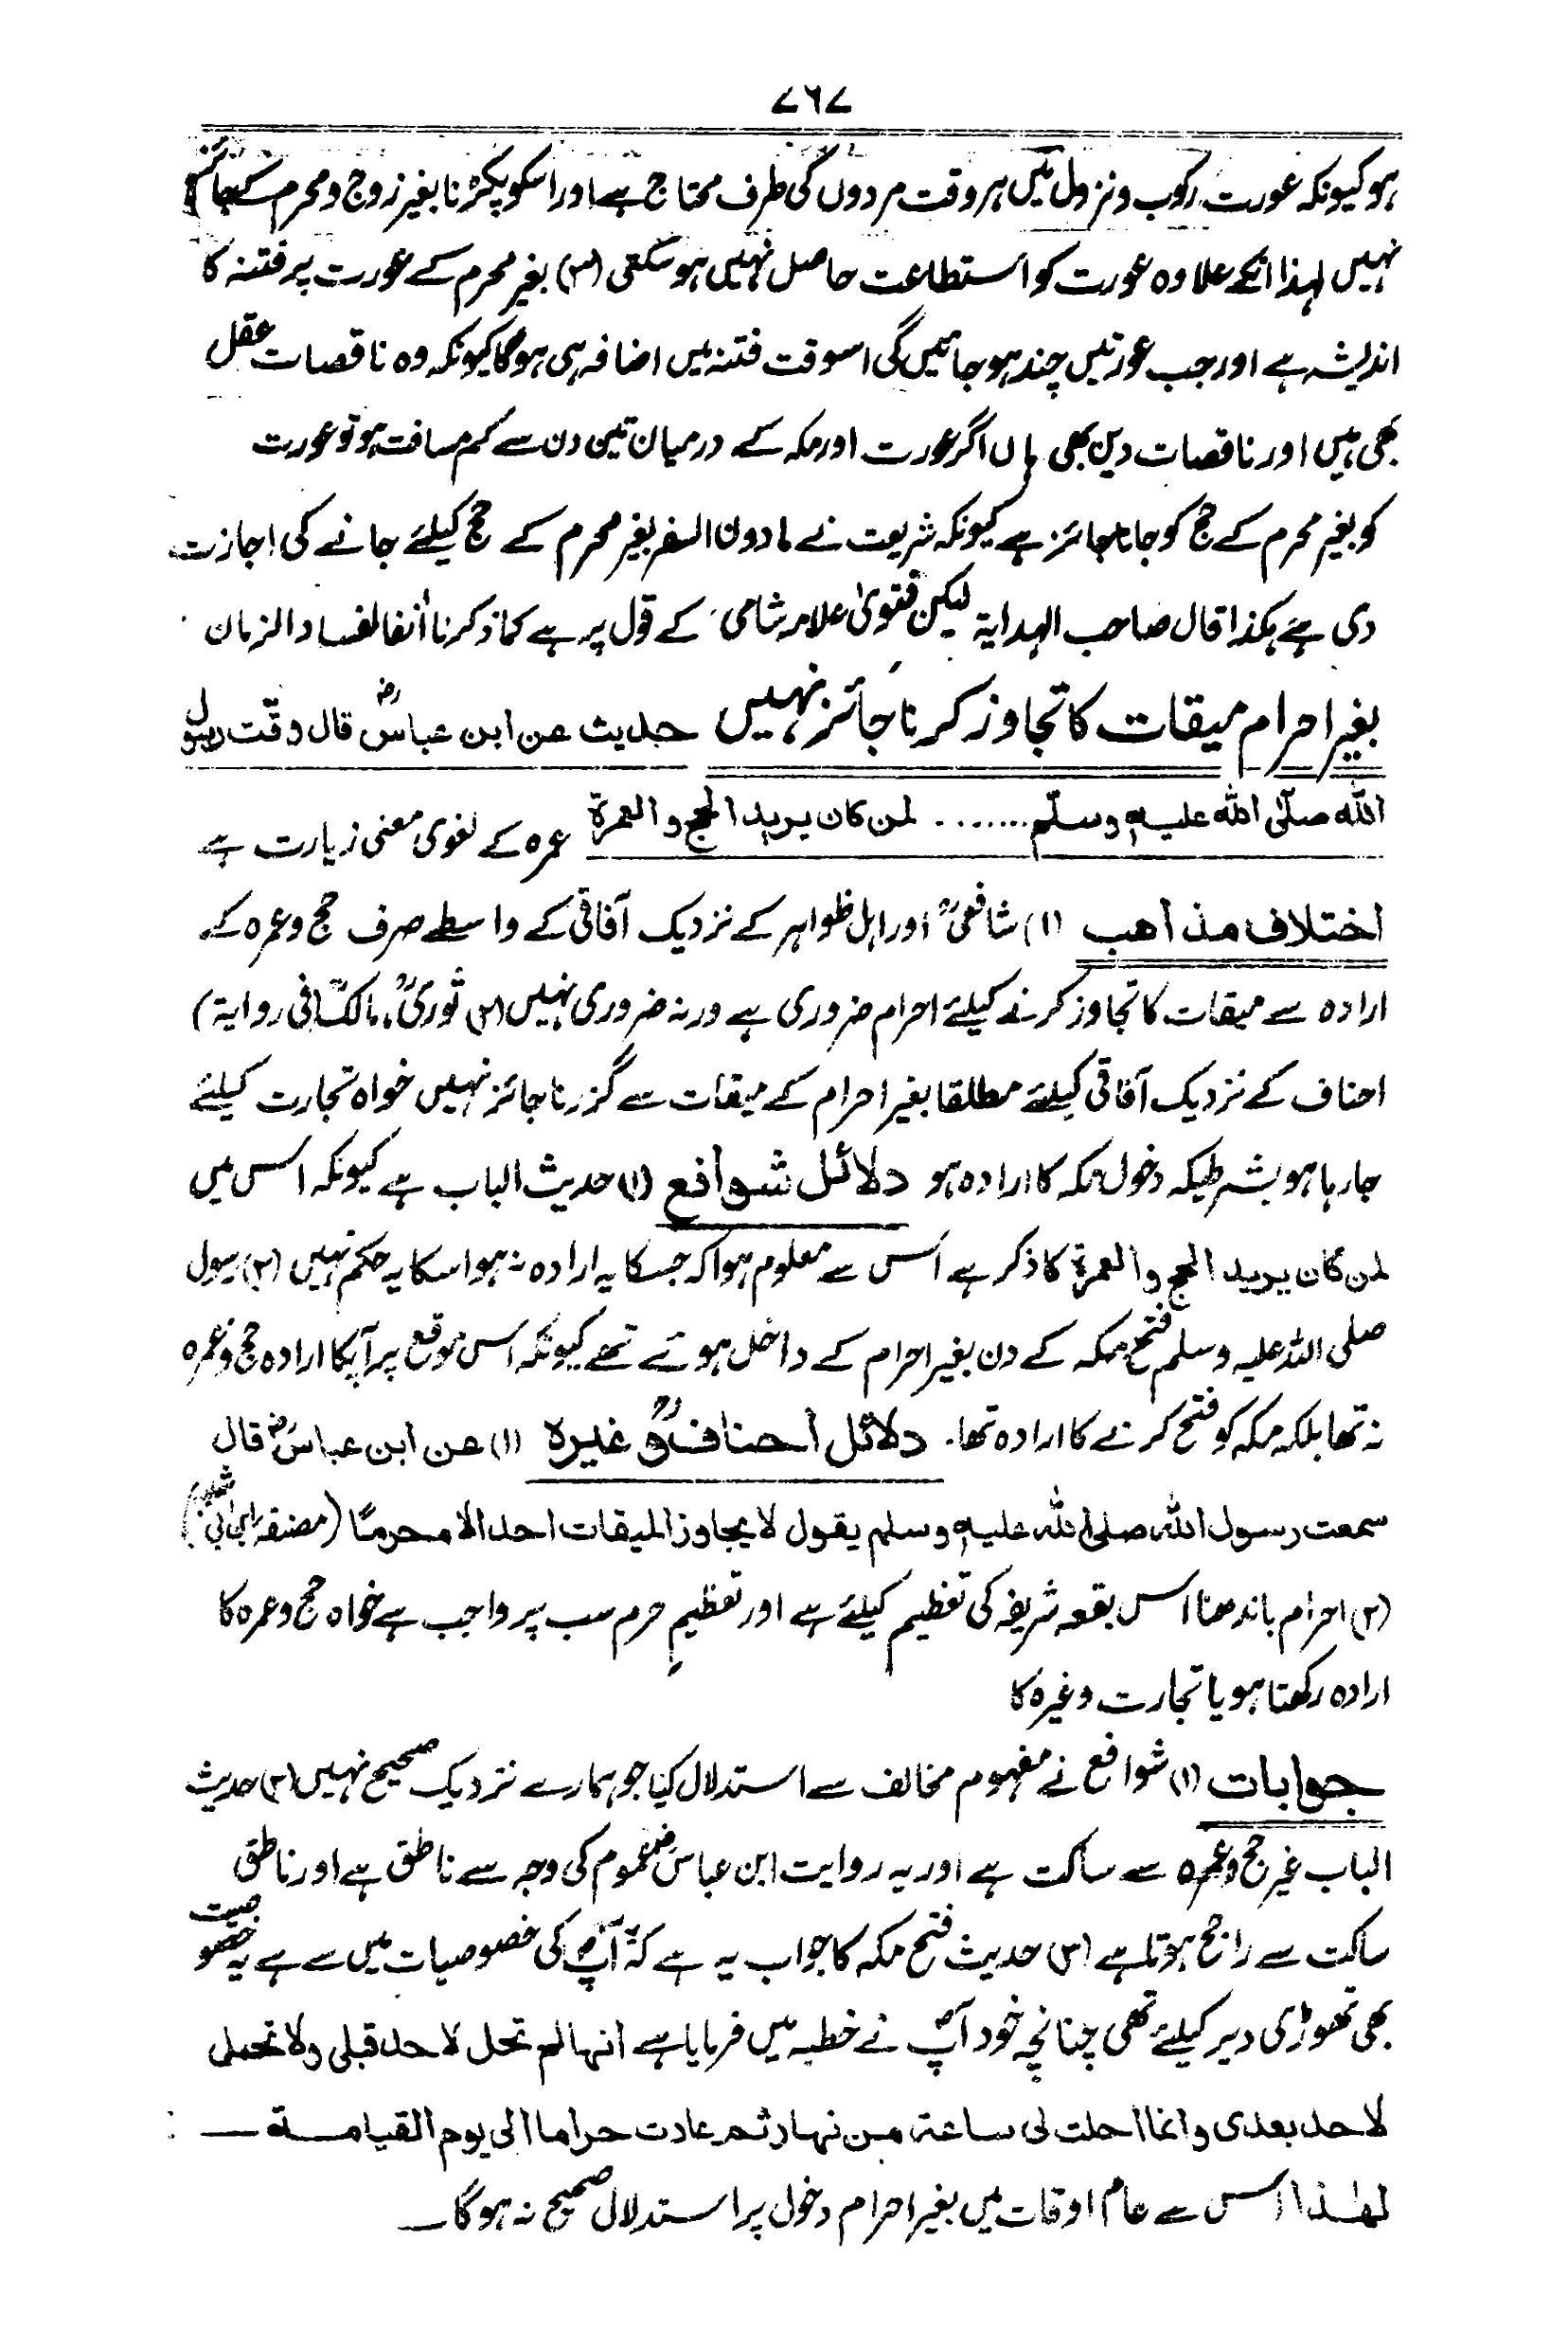 ۷۶۷
ہو کیونکہ عورت رکوب ونزول میں ہر وقت مردوں کی طرف محتاج ہے اور اسکو پکڑنا بغیر زوج ومحرم کے جائز
نہیں لہذا انکے علاوہ عورت کو استطاعت حاصل نہیں ہو سکتی (۳) بغیر محرم کے عورت پر فتنہ کا
اندیشہ ہے اور جب عورتیں چند ہو جائیں گی اسوقت فتنہ میں اضافہ ہی ہوگا کیونکہ وہ ناقصات عقل
بھی ہیں اور ناقصات دین بھی ہاں اگر عورت اور مکہ کے درمیان تین دن سے کم مسافت ہو تو عورت
کو بغیر محرم کے حج کو جانا جائز ہے کیونکہ شریعت نے مادون السفر بغیر محرم کے حج کیلئے جانے کی اجازت
دی ہے ہکذا قال صاحب الہدایۃ لیکن فتویٰ علامہ شامی کے قول پر ہے کما ذکرنا اٰنفا لفساد الزمان
بغیر احرام میقات کا تجاوز کرنا جائز نہیں حدیث عن ابن عباسؓ قال وقّت رسول
اللّٰہ صلّی اللّٰہ علیہ وسلّم ....... لمن کان یرید الحج والعمرۃ عمرہ کے لغوی معنی زیارت ہے
اختلاف مذاهب (۱) شافعیؒ اور اہل ظواہر کے نزدیک آفاقی کے واسطے صرف حج وعمرہ کے
ارادہ سے میقات کا تجاوز کرنے کیلئے احرام ضروری ہے ورنہ ضروری نہیں (۲) ثوریؒ، مالکؒ (فی روایۃ)
احناف کے نزدیک آفاقی کیلئے مطلقا بغیر احرام کے میقات سے گزرنا جائز نہیں خواہ تجارت کیلئے
جا رہا ہو بشرطیکہ دخول مکہ کا ارادہ ہو دلائل شوافع (۱) حدیث الباب ہے کیونکہ اس میں
لمن کان یرید الحج والعمرۃ کا ذکر ہے اس سے معلوم ہوا کہ جسکا یہ ارادہ نہ ہو اسکا یہ حکم نہیں (۲) رسول
صلی اللہ علیہ وسلم فتح مکہ کے دن بغیر احرام کے داخل ہوئے تھے کیونکہ اس موقع پر آپکا ارادہ حج وعمرہ
نہ تھا بلکہ مکہ کو فتح کرنے کا ارادہ تھا۔ دلائل احنافؒ وغیرہ (۱) عن ابن عباسؓ قال
سمعت رسول اللّٰہ صلی اللّٰہ علیہ وسلم یقول لا یجاوز المیقات احد الا محرمًا (مصنفہ ابن ابی شیبہ)
(۲) احرام باندھنا اس بقعہ شریفہ کی تعظیم کیلئے ہے اور تعظیمِ حرم سب پر واجب ہے خواہ حج وعمرہ کا
ارادہ رکھتا ہو یا تجارت وغیرہ کا
جوابات (۱) شوافع نے مفہوم مخالف سے استدلال کیا جو ہمارے نزدیک صحیح نہیں (۲) حدیث
الباب غیر حج وعمرہ سے ساکت ہے اور یہ روایت ابن عباسؓ عموم کی وجہ سے ناطق ہے اور ناطق
ساکت سے راجح ہوتا ہے (۳) حدیث فتح مکہ کا جواب یہ ہے کہ آپؐ کی خصوصیات میں سے ہے یہ خصوصیت
بھی تھوڑی دیر کیلئے تھی چنانچہ خود آپؐ نے خطبہ میں فرمایا ہے انہا لم تحل لاحد قبلی ولا تحل
لاحد بعدی وانما احلت لی ساعۃ من نہار ثم عادت حراما الی یوم القیامۃ —
لہٰذا اس سے عام اوقات میں بغیر احرام دخول پر استدلال صحیح نہ ہوگا —